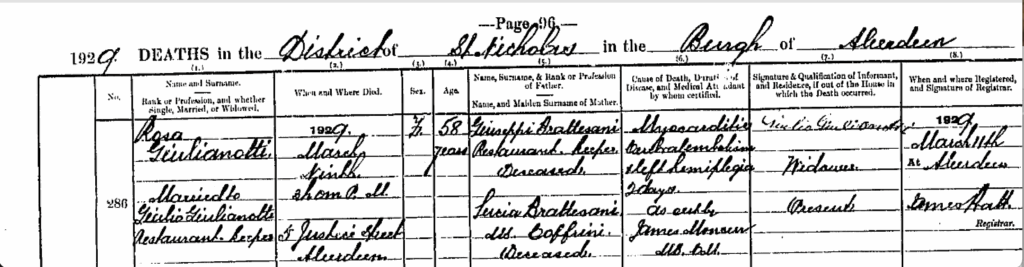 —Page 96.—
1929. DEATHS in the District of St. Nicholas in the Burgh of Aberdeen
No.
(1.)
Name and Surname.
Rank or Profession, and whether
Single, Married, or Widowed.
(2.)
When and Where Died.
(3.)
Sex.
(4.)
Age.
(5.)
Name, Surname, & Rank or Profession
of Father.
Name, and Maiden Surname of Mother.
(6.)
Cause of Death, Duration of
Disease, and Medical Attendant
by whom certified.
(7.)
Signature & Qualification of Informant,
and Residence, if out of the House in
which the Death occurred.
(8.)
When and where Registered,
and Signature of Registrar.
286
Rosa
Giulianotti
Married to
Giulio Giulianotti
Restaurant Keeper
1929
March
Ninth
P. M.
5 Justice Street
Aberdeen
F.
58
years
Giuseppi Brattesani
Restaurant Keeper
Deceased
Lucia Brattesani
M.S. Coffrini
Deceased
Myocarditis
Cerebral embolism
& left hemiplegia
2 days
As cert by
James
M.B. Ch.B.
Giulio Giulianotti
Widower
Present
1929
March 11th
At Aberdeen
James
Registrar.